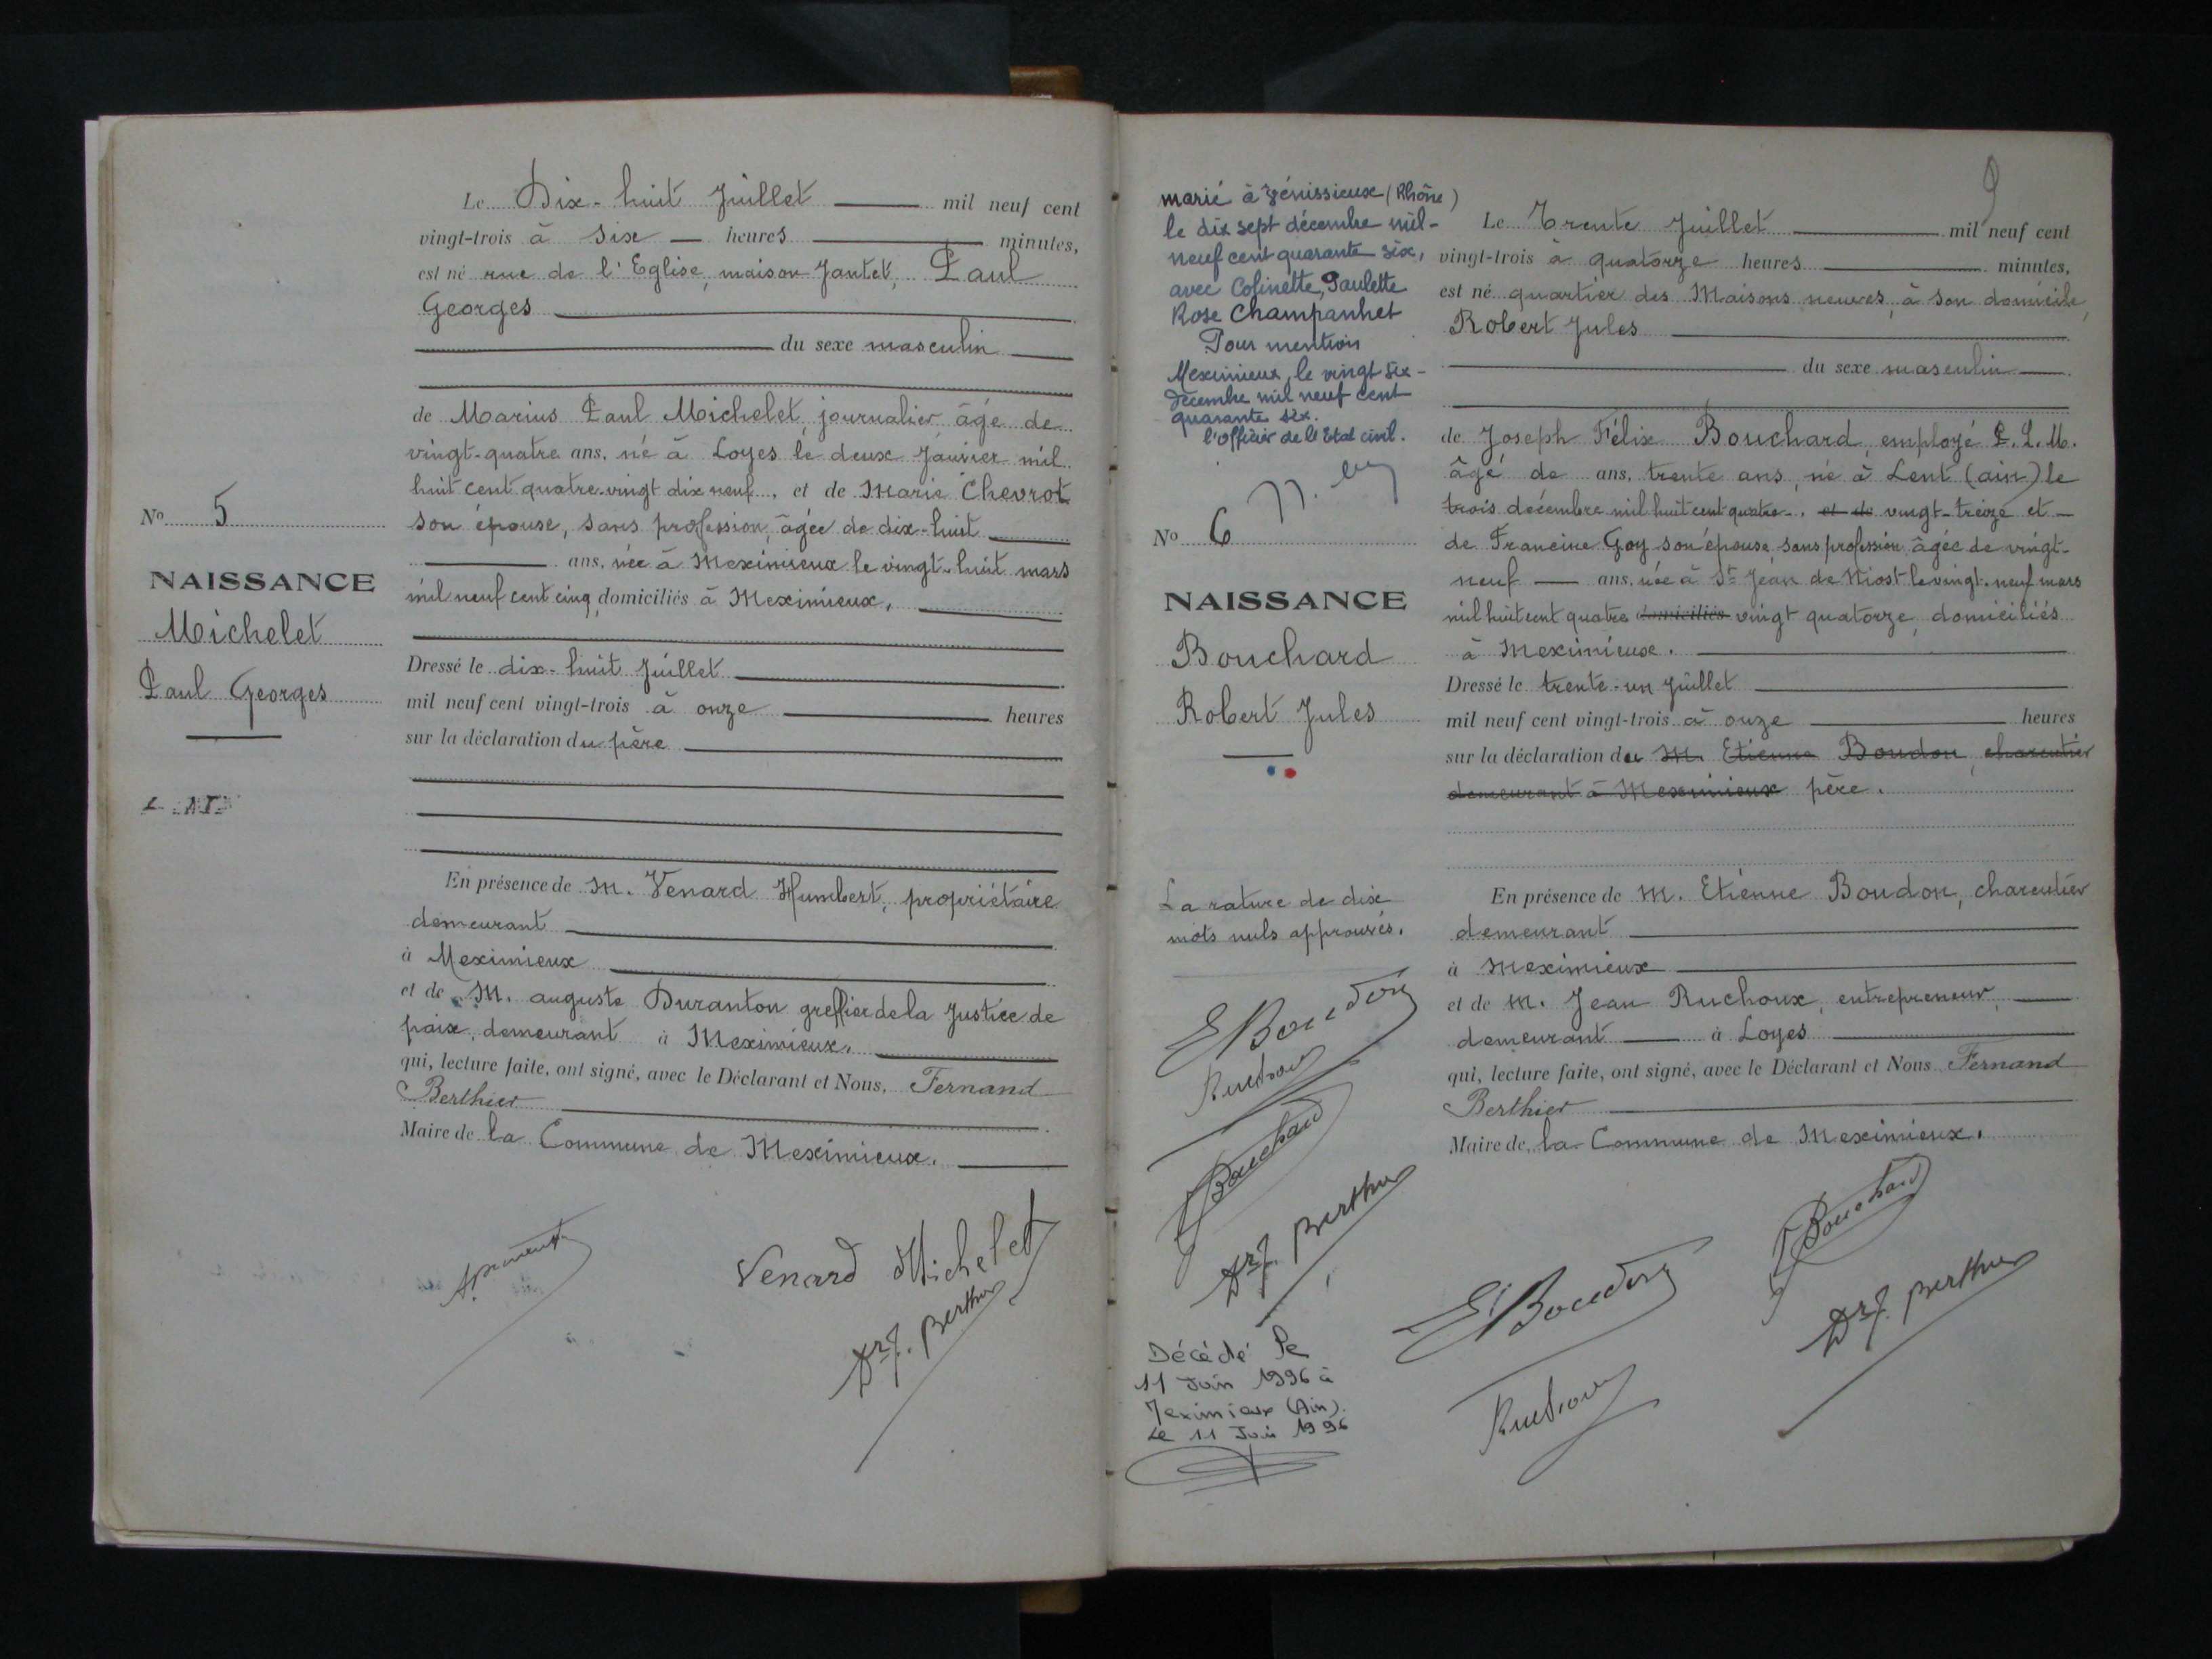 Le Dix-huit Juillet mil neuf cent
vingt-trois à six heures minutes,
est né rue de l'Eglise, maison Jantet, Paul
Georges
du sexe masculin
de Marius Paul Michelet, journalier âgé de
vingt-quatre ans, né à Loyes le deux Janvier mil
huit cent quatre-vingt dix neuf, et de Marie Chevrot
son épouse, sans profession, âgée de dix-huit
ans, née à Meximieux le vingt-huit mars
mil neuf cent cinq, domiciliés à Meximieux.
Dressé le dix-huit Juillet
mil neuf cent vingt-trois à onze heures
sur la déclaration du père
En présence de M. Venard Humbert, propriétaire
demeurant
à Meximieux
et de M. auguste Duranton greffier de la Justice de
paix, demeurant à Meximieux.
qui, lecture faite, ont signé, avec le Déclarant et Nous, Fernand
Berthier
Maire de la Commune de Meximieux.
Venard Michelet
Dr F. Berthier
No 5
NAISSANCE
Michelet
Paul Georges
marié à Vénissieux (Rhône)
le dix sept décembre mil-
neuf cent quarante six,
avec Colinette, Paulette
Rose Champanhet
Pour mention
Meximieux, le vingt six-
décembre mil neuf cent
quarante six.
l'officier de l'Etat civil.
No 6
NAISSANCE
Bouchard
Robert Jules
La rature de dix
mots nuls approuvés.
E Boudon
Ruchoux
Bouchard
Dr F. Berthier
Décédé le
11 Juin 1996 à
Meximieux (Ain).
Le 11 Juin 1996
9
Le Trente Juillet mil neuf cent
vingt-trois à quatorze heures minutes,
est né quartier des Maisons neuves, à son domicile,
Robert Jules
du sexe masculin
de Joseph Félix Bouchard, employé P.L.M.
âgé de ans, trente ans, né à Lent (ain) le
trois décembre mil huit cent quatre-. et de vingt-treize et
de Francine Goy son épouse sans profession âgée de vingt-
neuf ans, née à St Jean de Niost le vingt-neuf mars
mil huit cent quatre domiciliés vingt quatorze, domiciliés
à Meximieux.
Dressé le trente-un Juillet
mil neuf cent vingt-trois à onze heures
sur la déclaration du M. Etienne Boudon, charcutier
demeurant à Meximieux père.
En présence de M. Etienne Boudon, charcutier
demeurant
à Meximieux
et de M. Jean Ruchoux, entrepreneur,
demeurant à Loyes
qui, lecture faite, ont signé, avec le Déclarant et Nous Fernand
Berthier
Maire de la Commune de Meximieux.
Bouchard
E Boudon
Dr F. Berthier
Ruchoux